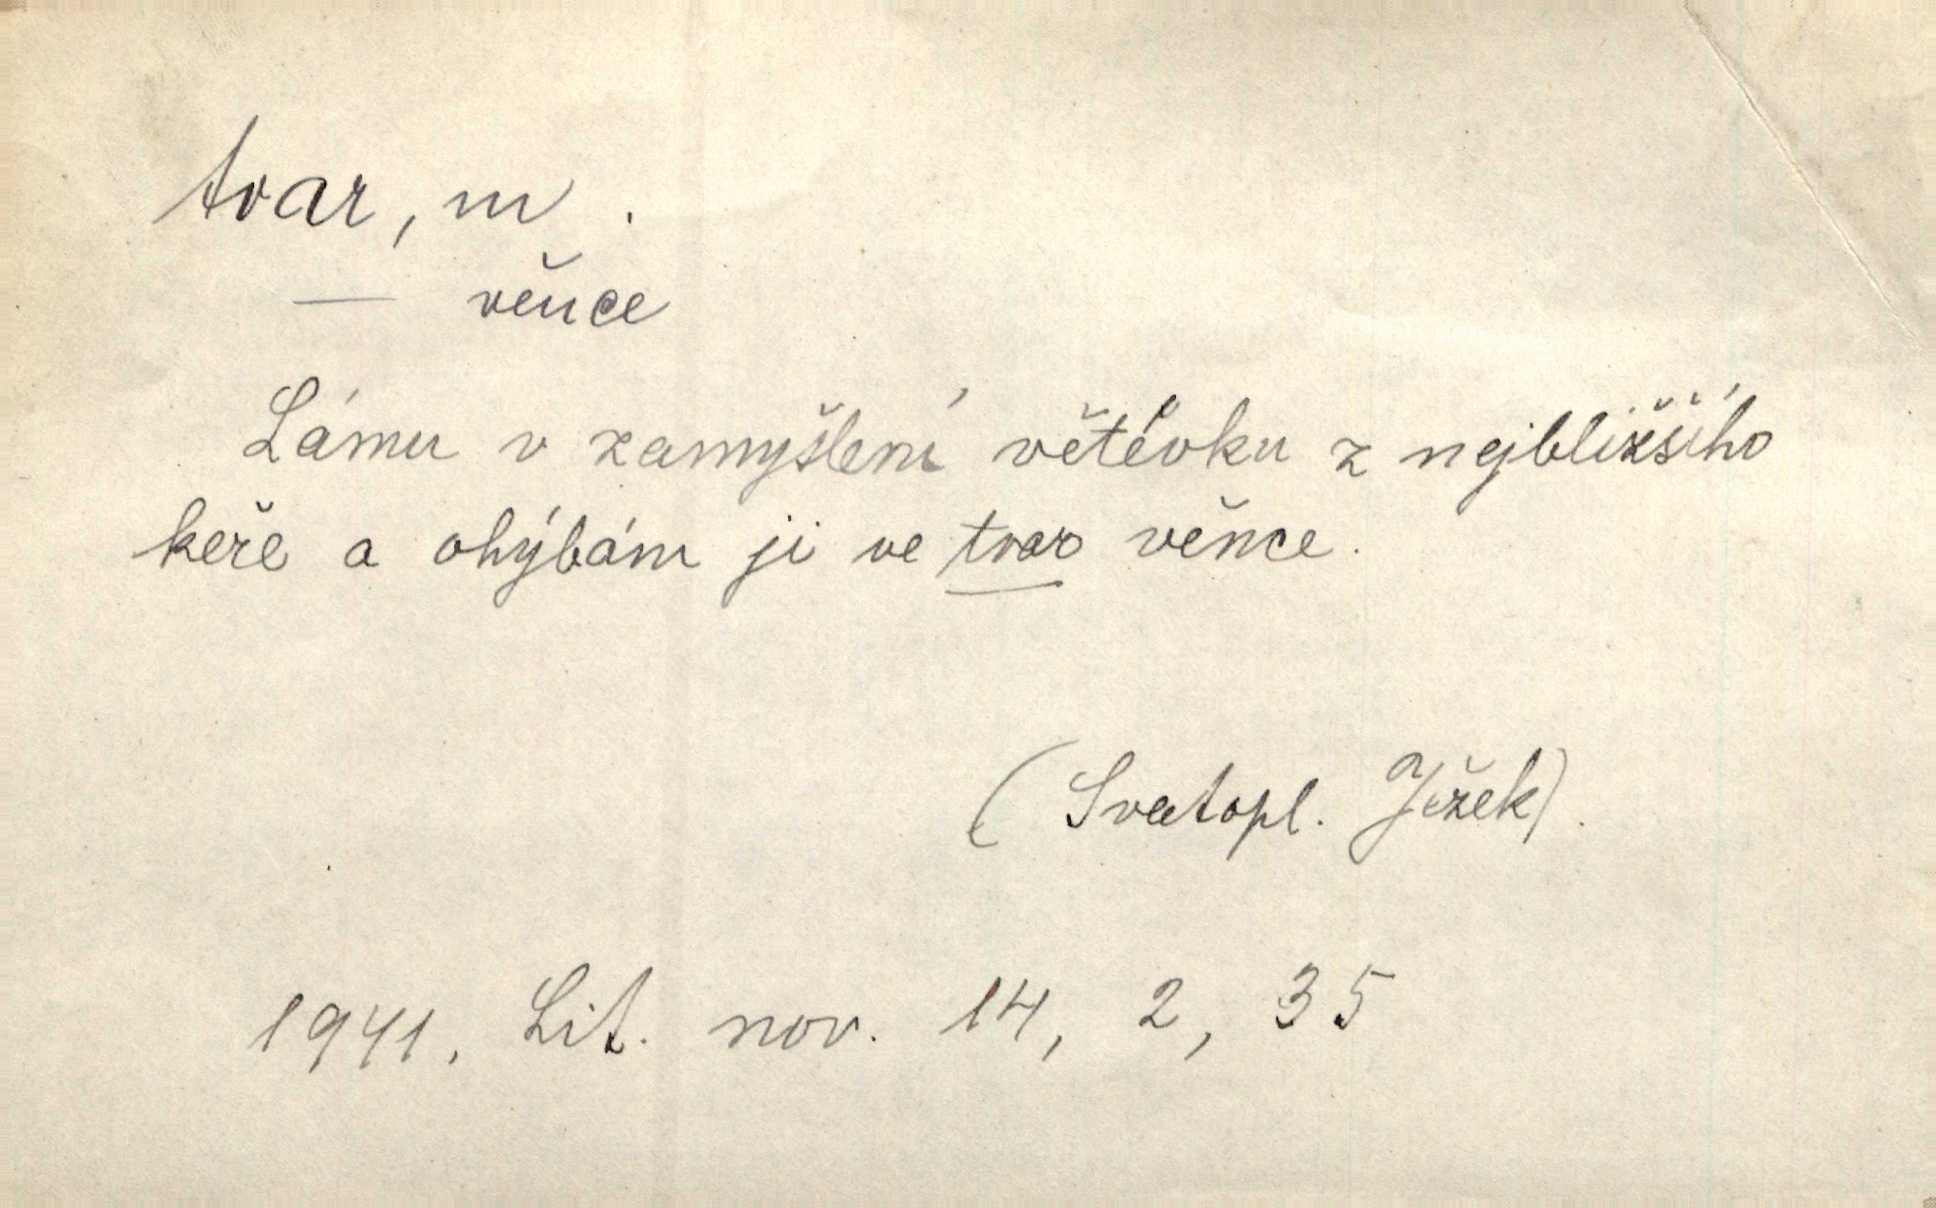 tvar, m.
— věnce
Lámu v zamyšlení větévku z nejbližšího
keře a ohýbám ji ve tvar věnce.
(Svatopl. Ježek).
1941. Lit. nov. 14, 2, 35